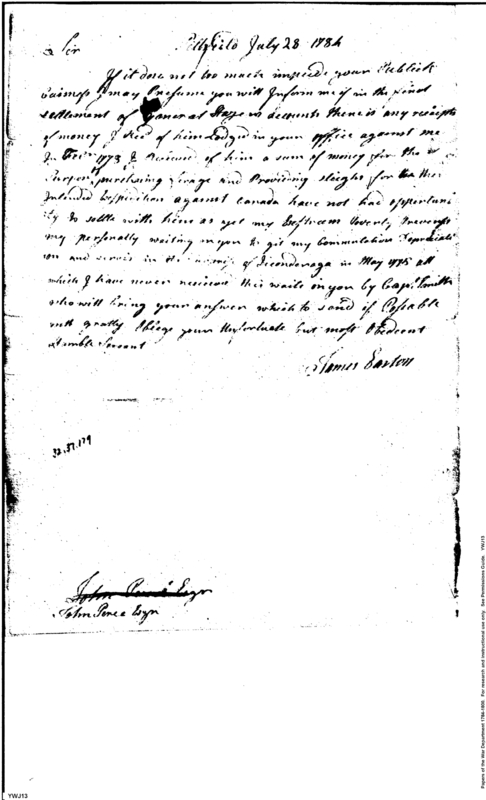 Sir Pittsfield July 28 1784
If it does not too much impeed your Publick
buisness I may Presume you will Inform me if in the final
settlement of General Hazens accounts there is any receipts
of money I Recd of him Lodged in your office against me
In 1778 I Received of him a sum of money for the
Purpose of purchising forage and Providing sleighs for the then
Intended Expedition against Canada have not had opportuni
ty to settle with him as yet my Extream Poverty Prevents
my personally waiting on you to git my Commutation Depreciati
on and servis in the of Ticonderoga in May 1775 all
which I have never recived this waits on you by Capt. Smith
who will bring your answer which to send if Possable
will gratly Oblege your Unfortunate but most Obedient
Humble Servent
James Easton
32.37.179
John Perce Esqr
John Perce Esqr
Papers of the War Department 1784-1800. For research and instructional use only. See Permissions Guide. YWJ13
YWJ13